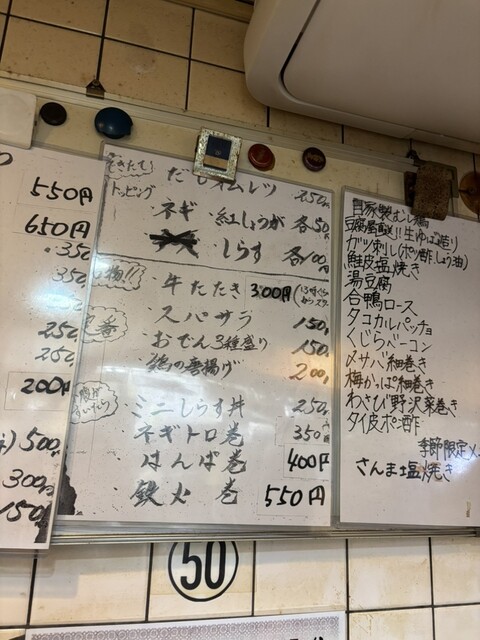 550円
650円
350
350
250
250
200円
500
300
150
できたて!
だし巻オムレツ 250
トッピング
ネギ・紅しょうが 各50
しらす 各100円
牛たたき 300円
定番
スパサラ 150
おでん3種盛り 150
鶏の唐揚げ 200
ミニしらす丼 250
ネギトロ巻 350
はんぱ巻 400円
鉄火巻 550円
自家製むし鶏
豆腐屋直送!!生ゆば(造り)
ガツ刺し(ポン酢、しょう油)
鮭皮塩焼き
湯豆腐
合鴨ロース
タコカルパッチョ
くじらベーコン
〆サバ細巻き
梅かっぱ細巻き
わさび野沢菜巻き
タイ皮ポン酢
季節限定メ
さんま塩焼き
50